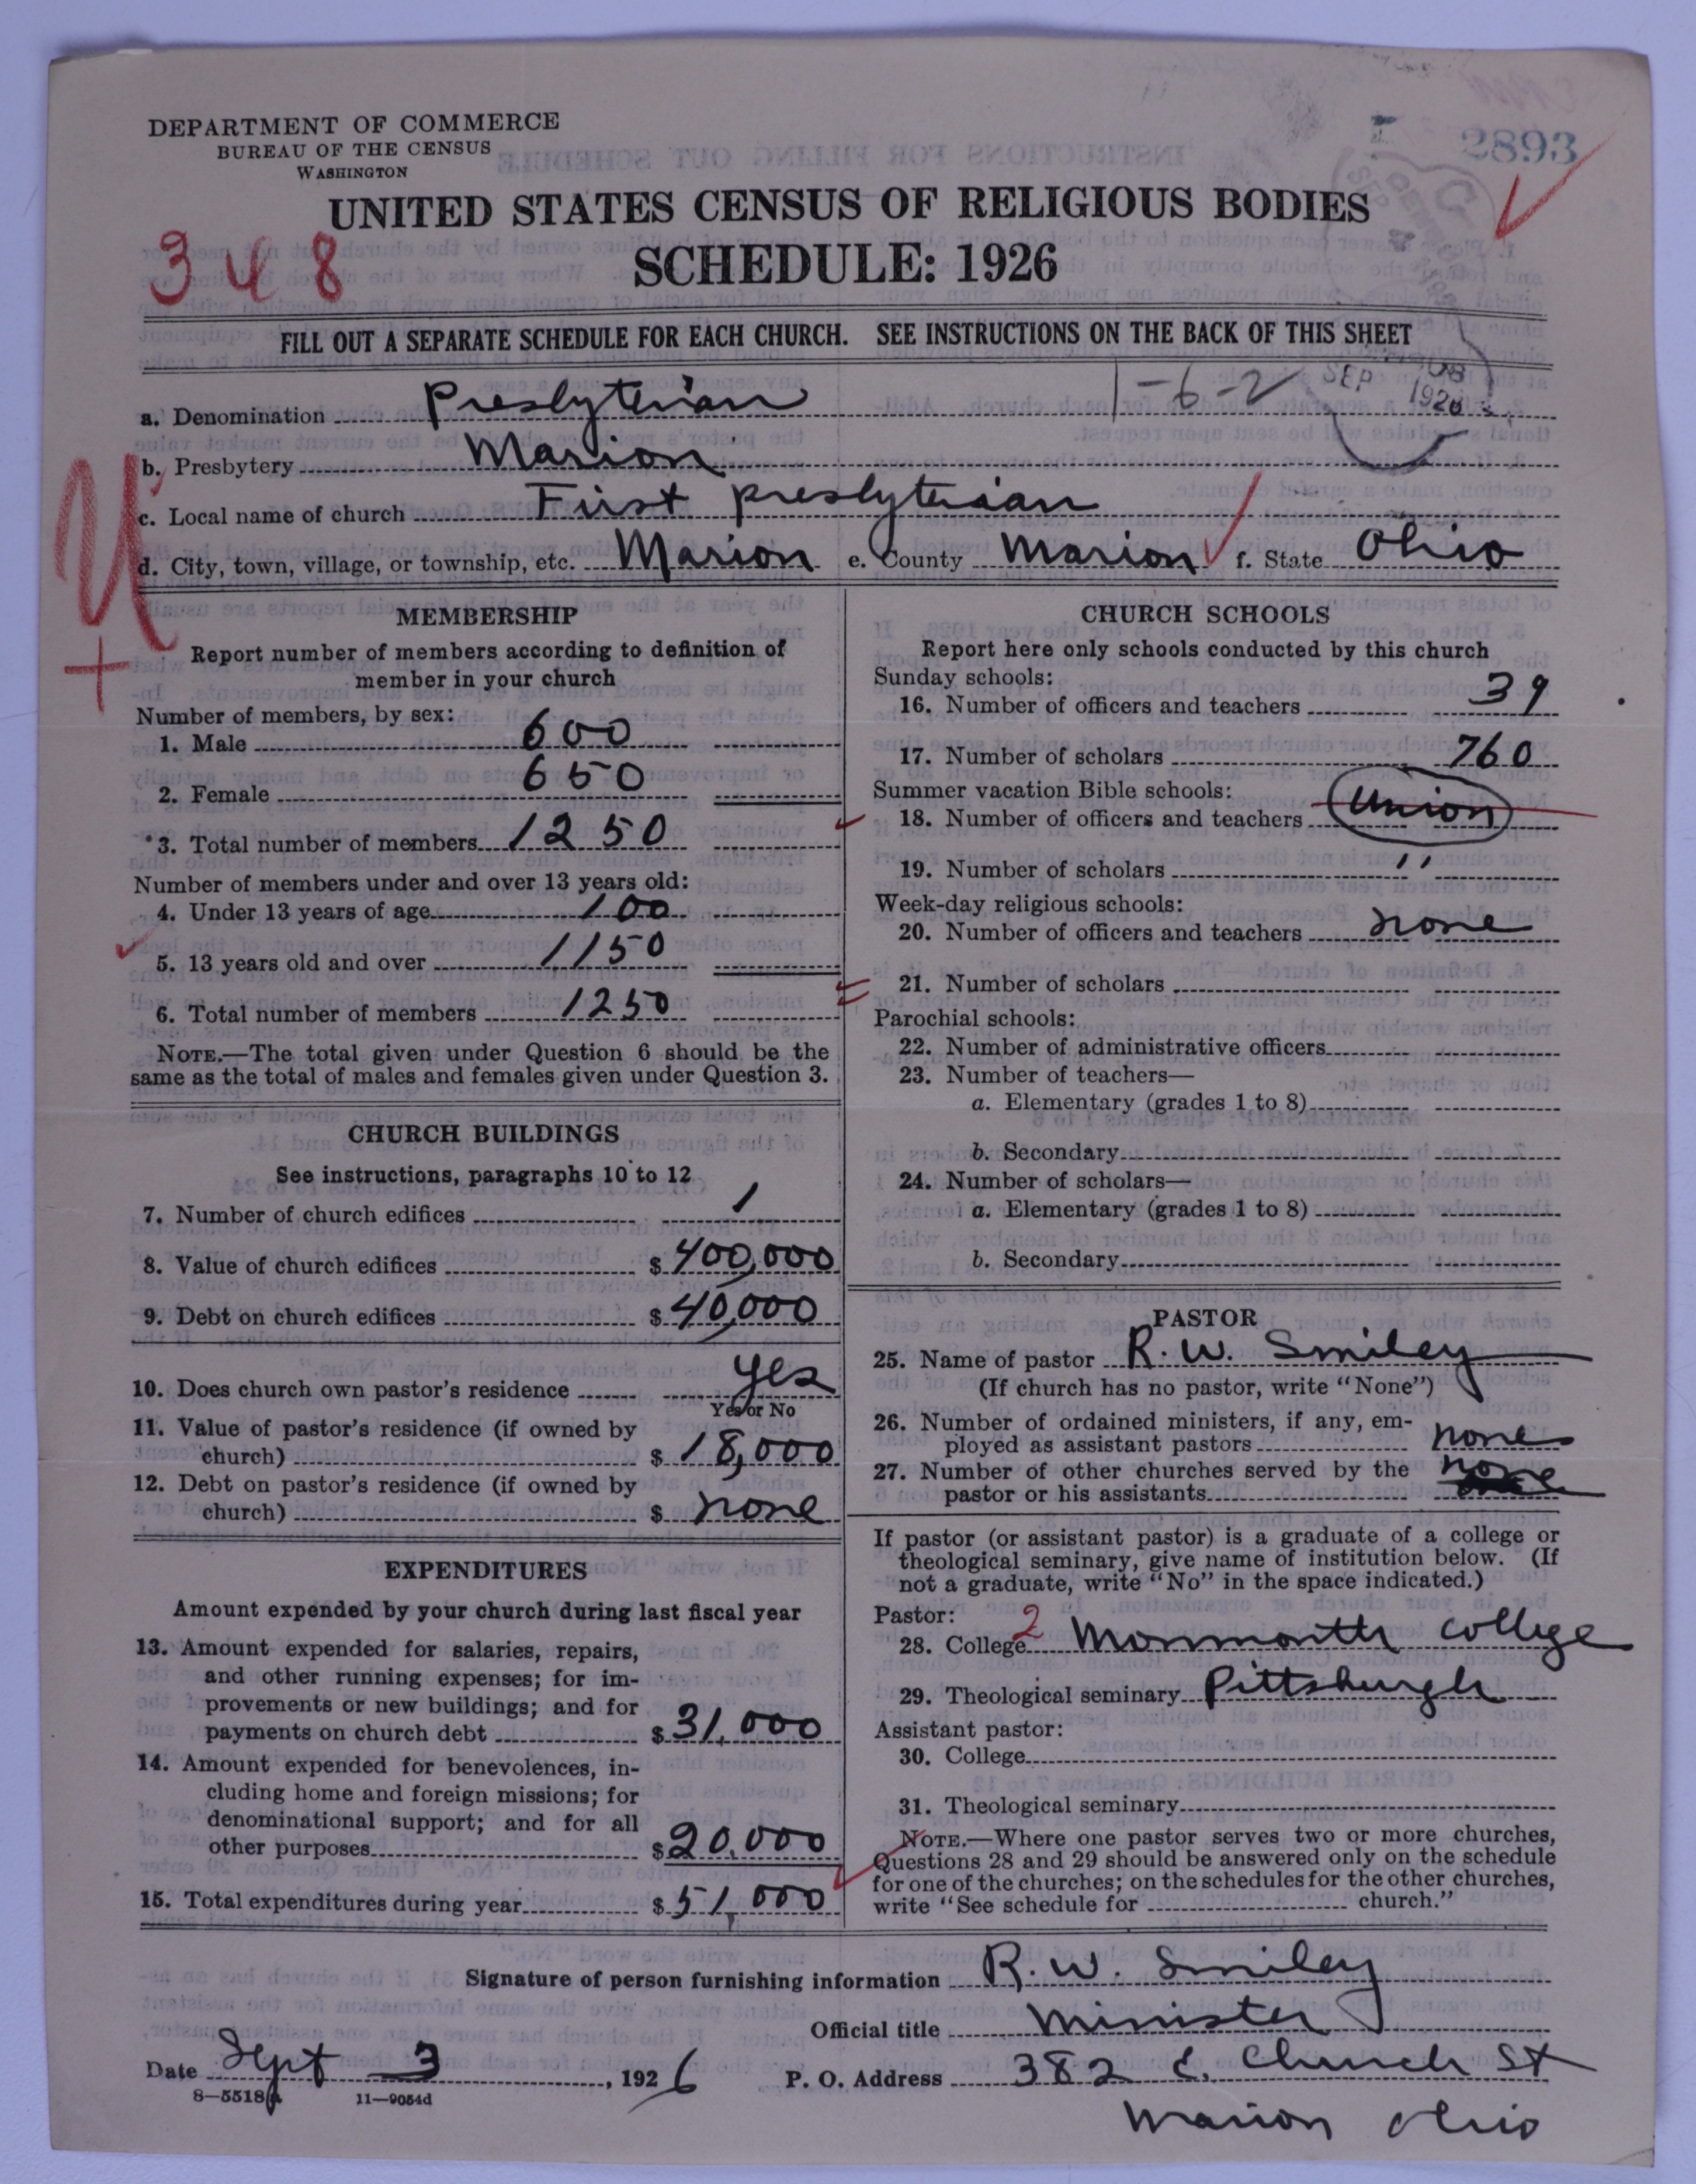 DEPARTMENT OF COMMERCE
BUREAU OF THE CENSUS
WASHINGTON
2893
UNITED STATES CENSUS OF RELIGIOUS BODIES
SCHEDULE: 1926
348
FILL OUT A SEPARATE SCHEDULE FOR EACH CHURCH. SEE INSTRUCTIONS ON THE BACK OF THIS SHEET
1-6-2
SEP 1926
a. Denomination Presbyterian
b. Presbytery Marion
c. Local name of church First Presbyterian
d. City, town, village, or township, etc. Marion e. County Marion f. State Ohio
MEMBERSHIP
Report number of members according to definition of
member in your church
Number of members, by sex:
1. Male 600
2. Female 650
3. Total number of members 1250
Number of members under and over 13 years old:
4. Under 13 years of age 100
5. 13 years old and over 1150
6. Total number of members 1250
NOTE.—The total given under Question 6 should be the
same as the total of males and females given under Question 3.
CHURCH BUILDINGS
See instructions, paragraphs 10 to 12
7. Number of church edifices 1
8. Value of church edifices $ 400,000
9. Debt on church edifices $ 40,000
10. Does church own pastor's residence yes
Yes or No
11. Value of pastor's residence (if owned by
church) $ 18,000
12. Debt on pastor's residence (if owned by
church) $ none
EXPENDITURES
Amount expended by your church during last fiscal year
13. Amount expended for salaries, repairs,
and other running expenses; for im-
provements or new buildings; and for
payments on church debt $ 31,000
14. Amount expended for benevolences, in-
cluding home and foreign missions; for
denominational support; and for all
other purposes $ 20,000
15. Total expenditures during year $ 51,000
CHURCH SCHOOLS
Report here only schools conducted by this church
Sunday schools:
16. Number of officers and teachers 39
17. Number of scholars 760
Summer vacation Bible schools:
18. Number of officers and teachers Union
19. Number of scholars ''
Week-day religious schools:
20. Number of officers and teachers none
21. Number of scholars
Parochial schools:
22. Number of administrative officers
23. Number of teachers—
a. Elementary (grades 1 to 8)
b. Secondary
24. Number of scholars—
a. Elementary (grades 1 to 8)
b. Secondary
PASTOR
25. Name of pastor R. W. Smiley
(If church has no pastor, write "None")
26. Number of ordained ministers, if any, em-
ployed as assistant pastors none
27. Number of other churches served by the
pastor or his assistants none
If pastor (or assistant pastor) is a graduate of a college or
theological seminary, give name of institution below. (If
not a graduate, write "No" in the space indicated.)
Pastor:
28. College 2 Monmouth College
29. Theological seminary Pittsburgh
Assistant pastor:
30. College
31. Theological seminary
NOTE.—Where one pastor serves two or more churches,
Questions 28 and 29 should be answered only on the schedule
for one of the churches; on the schedules for the other churches,
write "See schedule for church."
Signature of person furnishing information R. W. Smiley
Official title Minister
Date Sept 3, 1926 P. O. Address 382 E. Church St
8-5518a 11-9054d
Marion Ohio